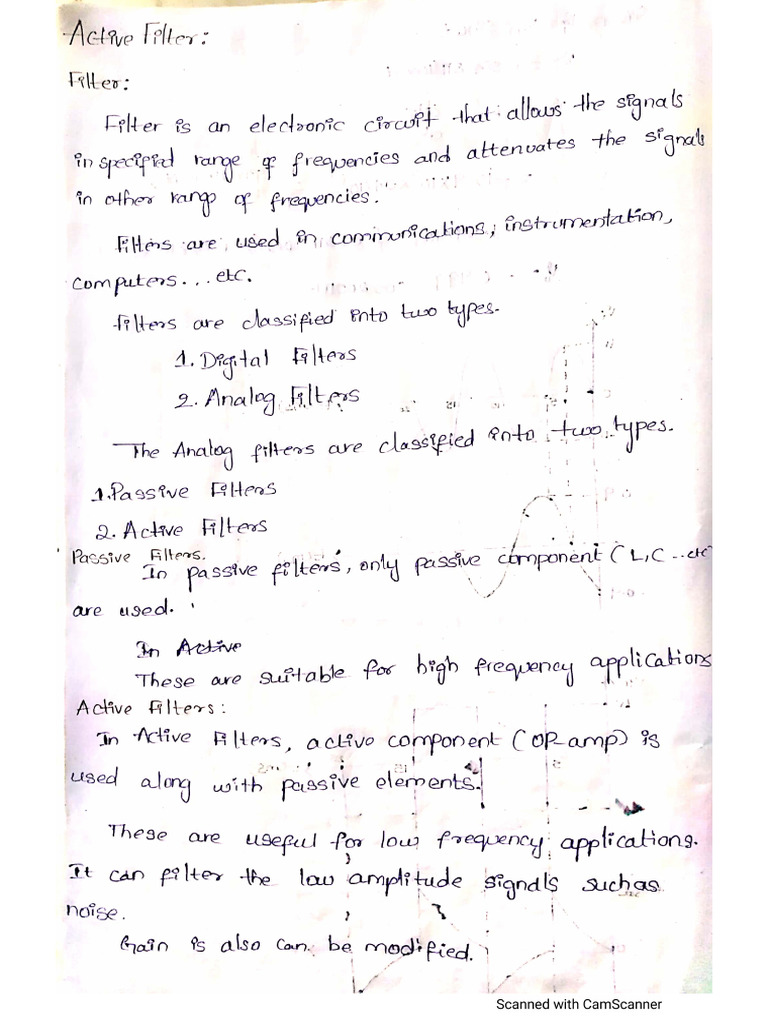 Active Filter:
Filter:
Filter is an electronic circuit that allows the signals
in specified range of frequencies and attenuates the signals
in other range of frequencies.
Filters are used in communications, instrumentation,
computers... etc.
Filters are classified into two types.
1. Digital Filters
2. Analog Filters
The Analog filters are classified into two types.
1. Passive Filters
2. Active Filters
Passive Filters.
In passive filters, only passive component (L,C ..etc
are used.
In Active
These are suitable for high frequency applications
Active Filters:
In Active Filters, active component (OP amp) is
used along with passive elements.
These are useful for low frequency applications.
It can filter the low amplitude signals such as
noise.
Gain is also can be modified.
Scanned with CamScanner